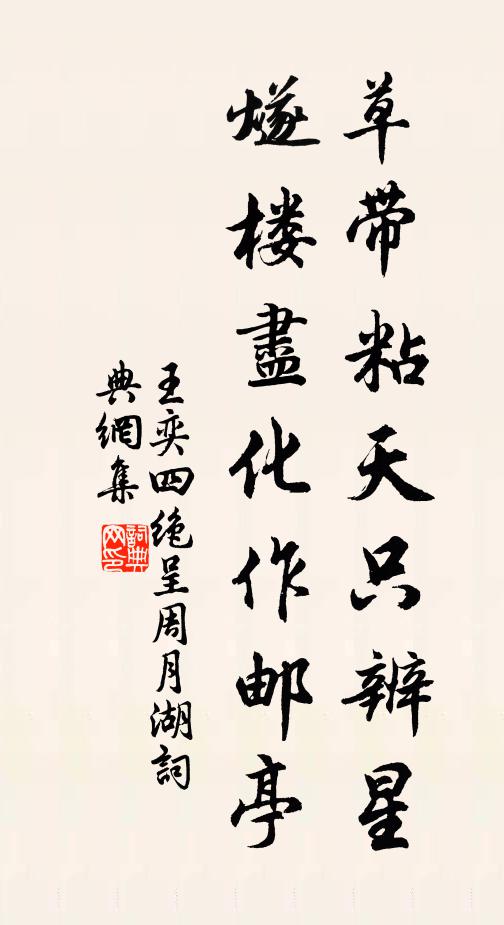 草带粘天只辨星
燧楼盡化作邮亭
王奕四绝呈周月湖詞
典網集
詞典
网印